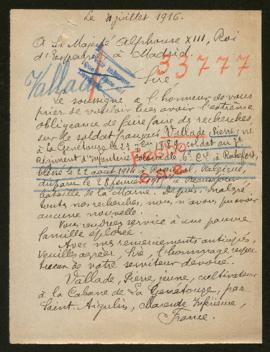 Le 4 juillet 1916.
A Sa Majesté Alphonse XIII, Roi
d'Espagne, à Madrid.
33777
Vallade
Sire
Le soussigné a l'honneur de vous
prier de vouloir bien avoir l'extrême
obligeance de faire faire des recherches
sur le soldat français Vallade, Pierre, né
à La Genétouze le 23
régiment d'infanterie 6e Cie à Rochefort,
22 août 1914 à Belgique,
le 28
depuis, malgré
toutes nos recherches, nous n'avons pu avoir
aucune nouvelle.
Vous rendrez service à une pauvre
famille éplorée.
Avec mes remerciements anticipés,
veuillez agréer, Sire, l'hommage respec-
tueux de votre serviteur dévoué.
Vallade, Pierre, jeune, cultivateur
à la Cabane de La Genétouze, par
Saint-Aigulin, Charente Inférieure,
France.